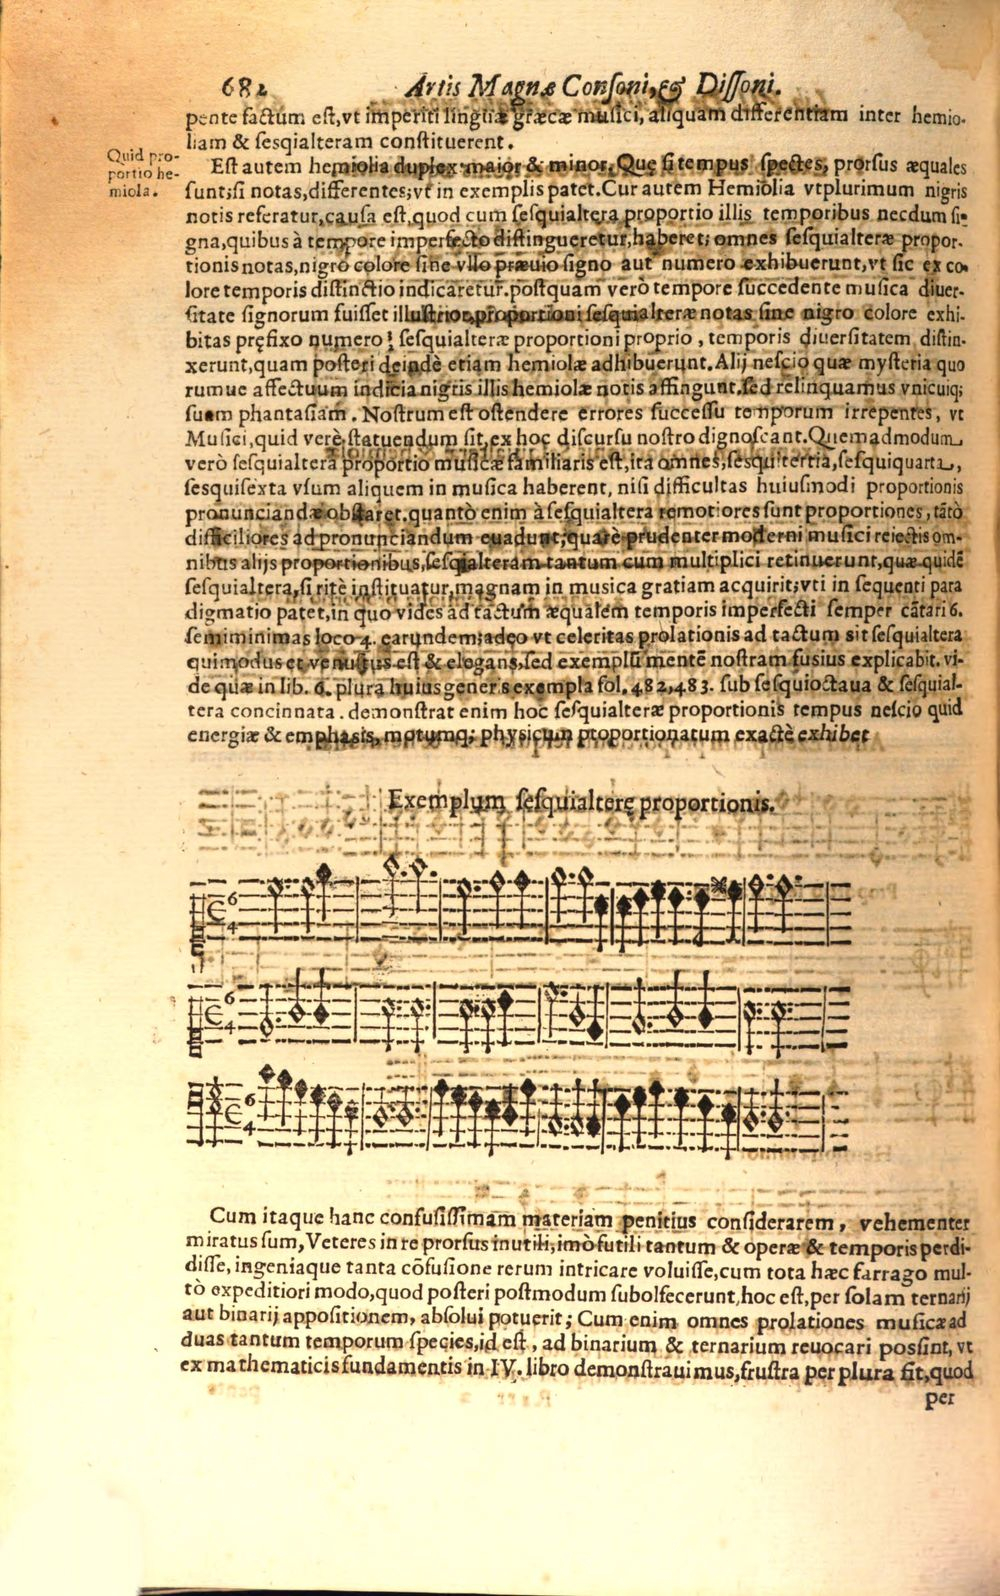 682 Artis Magnæ Consoni, & Dissoni.
pente factum est, vt imperiti linguæ græcæ musici, aliquam differentiam inter hemio-
liam & sesqialteram constituerent.
Quid pro-
portio he-
miola.
Est autem hemiolia duplex maior & minor, Quę si tempus spectes, prorsus æquales
sunt; si notas, differentes; vt in exemplis patet. Cur autem Hemiolia vtplurimum nigris
notis referatur, causa est, quod cum sesquialtera proportio illis temporibus necdum si-
gna, quibus à tempore imperfecto distingueretur, haberet; omnes sesquialteræ propor-
tionis notas, nigro colore sine vllo præuio signo aut numero exhibuerunt, vt sic ex co-
lore temporis distinctio indicaretur. postquam verò tempore succedente musica diuer-
sitate signorum fuisset illustrior, proportioni sesquialteræ notas sine nigro colore exhi-
bitas pręfixo numero sesquialteræ proportioni proprio, temporis diuersitatem distin-
xerunt, quam posteri deindè etiam hemiolæ adhibuerunt. Alij nescio quæ mysteria quo
rumue affectuum indicia nigris illis hemiolæ notis affingunt. sed relinquamus vnicuiq;
suam phantasiam. Nostrum est ostendere errores successu temporum irrepentes, vt
Musici, quid verè statuendum sit, ex hoc discursu nostro dignoscant. Quemadmodum
verò sesquialtera proportio musicæ familiaris est, ita omnes, sesquitertia, sesquiquarta,
sesquisexta vsum aliquem in musica haberent, nisi difficultas huiusmodi proportionis
pronunciandæ obstaret. quantò enim à sesquialtera remotiores sunt proportiones, tãtò
difficiliores ad pronunciandum euadunt; quarè prudenter moderni musici reiectis om-
nibus alijs proportionibus, sesqialteram tantum cum multiplici retinuerunt, quæ quidẽ
sesquialtera, si ritè instituatur, magnam in musica gratiam acquirit; vti in sequenti para
digmatio patet, in quo vides ad tactum æqualem temporis imperfecti semper cãtari 6.
semiminimas loco 4. earundem; adeo vt celeritas prolationis ad tactum sit sesquialtera
qui modus et venustus est & elegans. sed exemplũ mentẽ nostram fusius explicabit. vi-
de quæ in lib. 6. plura huius generis exempla fol. 482, 483. sub sesquioctaua & sesquial-
tera concinnata. demonstrat enim hoc sesquialteræ proportionis tempus nescio quid
energiæ & emphasis, motumq; physicum proportionatum exactè exhibet
Exemplum sesquialterę proportionis.
6
4
6
4
6
4
Cum itaque hanc confusissimam materiam penitius considerarem, vehementer
miratus sum, Veteres in re prorsus inutili, imò futili tantum & operæ & temporis perdi-
disse, ingeniaque tanta cõfusione rerum intricare voluisse, cum tota hæc farrago mul-
tò expeditiori modo, quod posteri postmodum subolfecerunt, hoc est, per solam ternarij
aut binarij appositionem, absolui potuerit; Cum enim omnes prolationes musicæ ad
duas tantum temporum species, id est, ad binarium & ternarium reuocari possint, vt
ex mathematicis fundamentis in IV. libro demonstrauimus, frustra per plura fit, quod
per